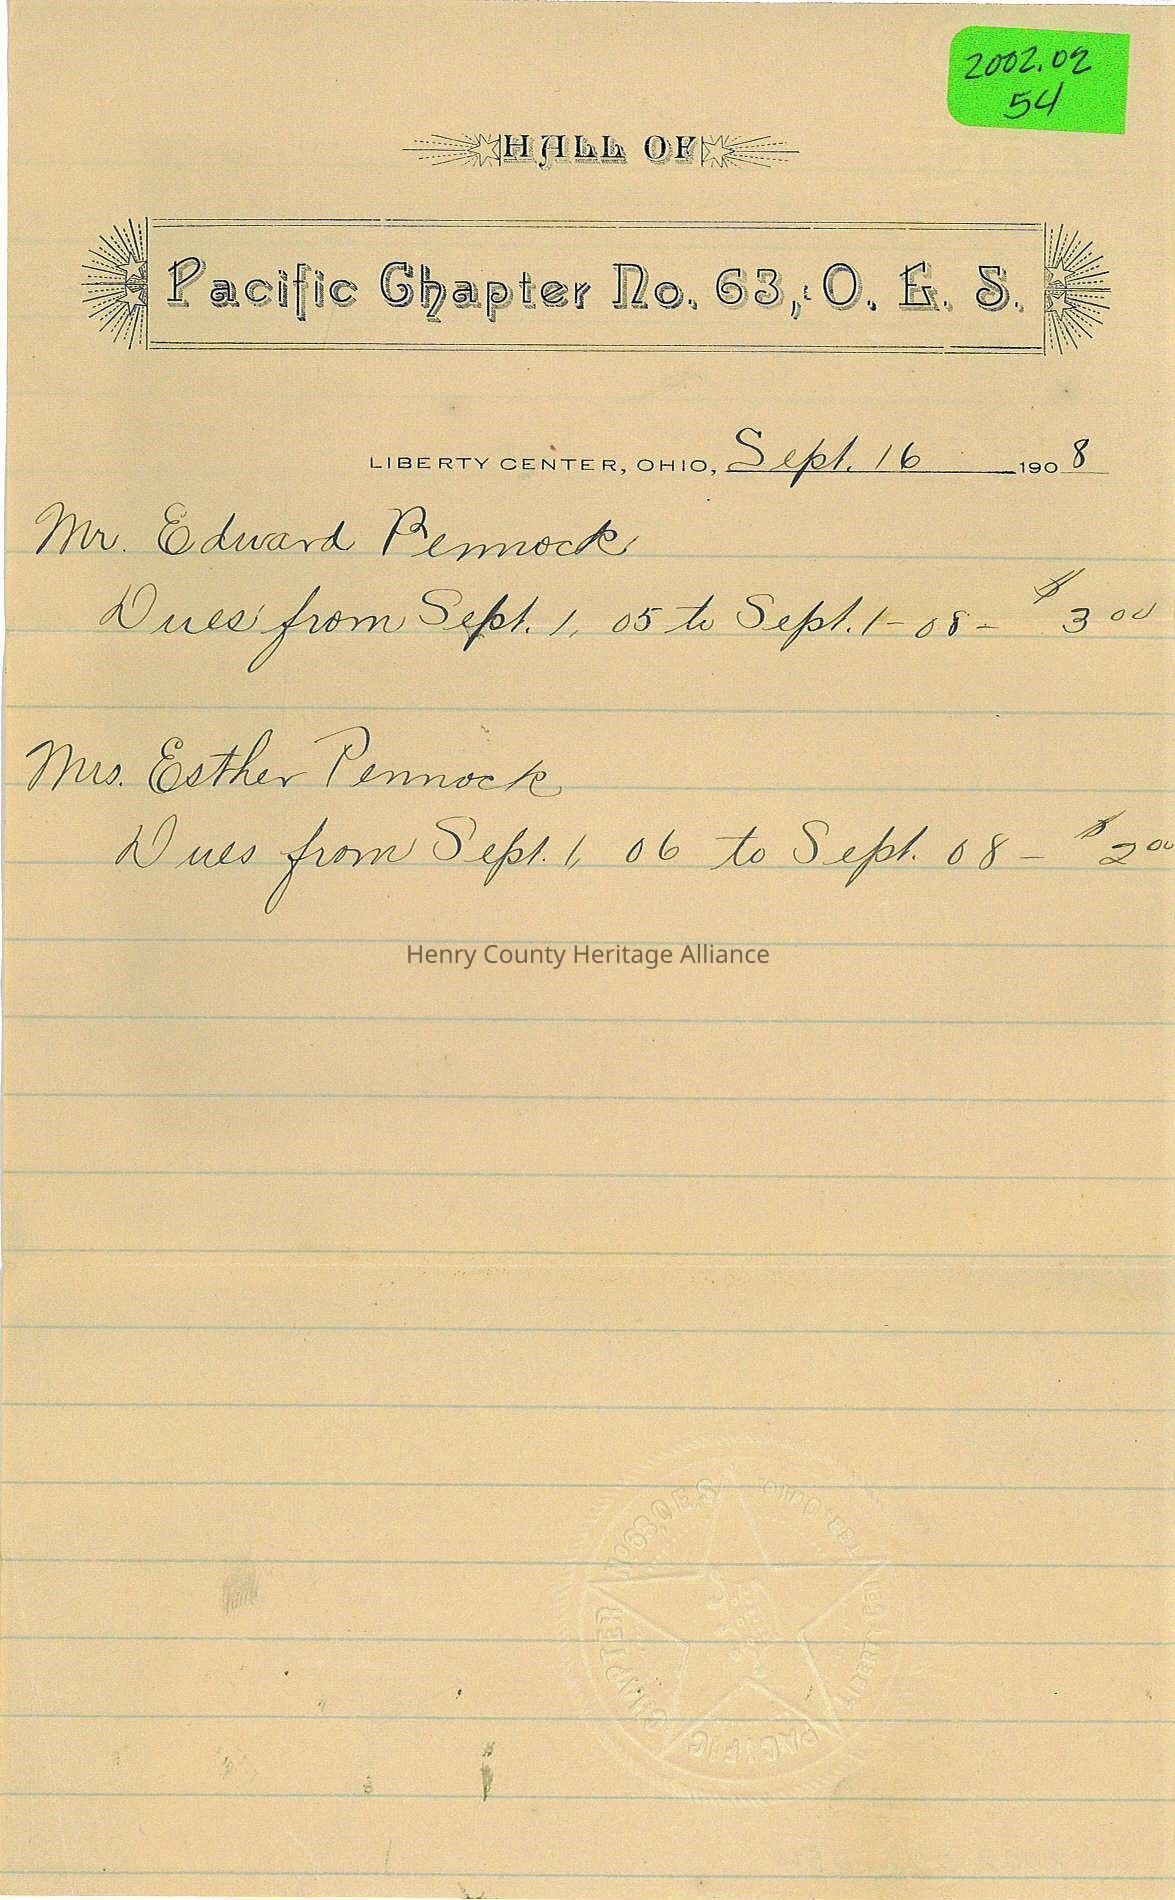 2002.02
54
HALL OF
Pacific Chapter No. 63, O. E. S.
LIBERTY CENTER, OHIO, Sept. 16 1908
Mr. Edward Pennock
Dues from Sept. 1, 05 to Sept. 1 - 08 - $3 00
Mrs. Esther Pennock
Dues from Sept. 1, 06 to Sept. 08 - $2 00
Henry County Heritage Alliance
PACIFIC CHAPTER NO 63 O.E.S. LIBERTY CENTER OHIO